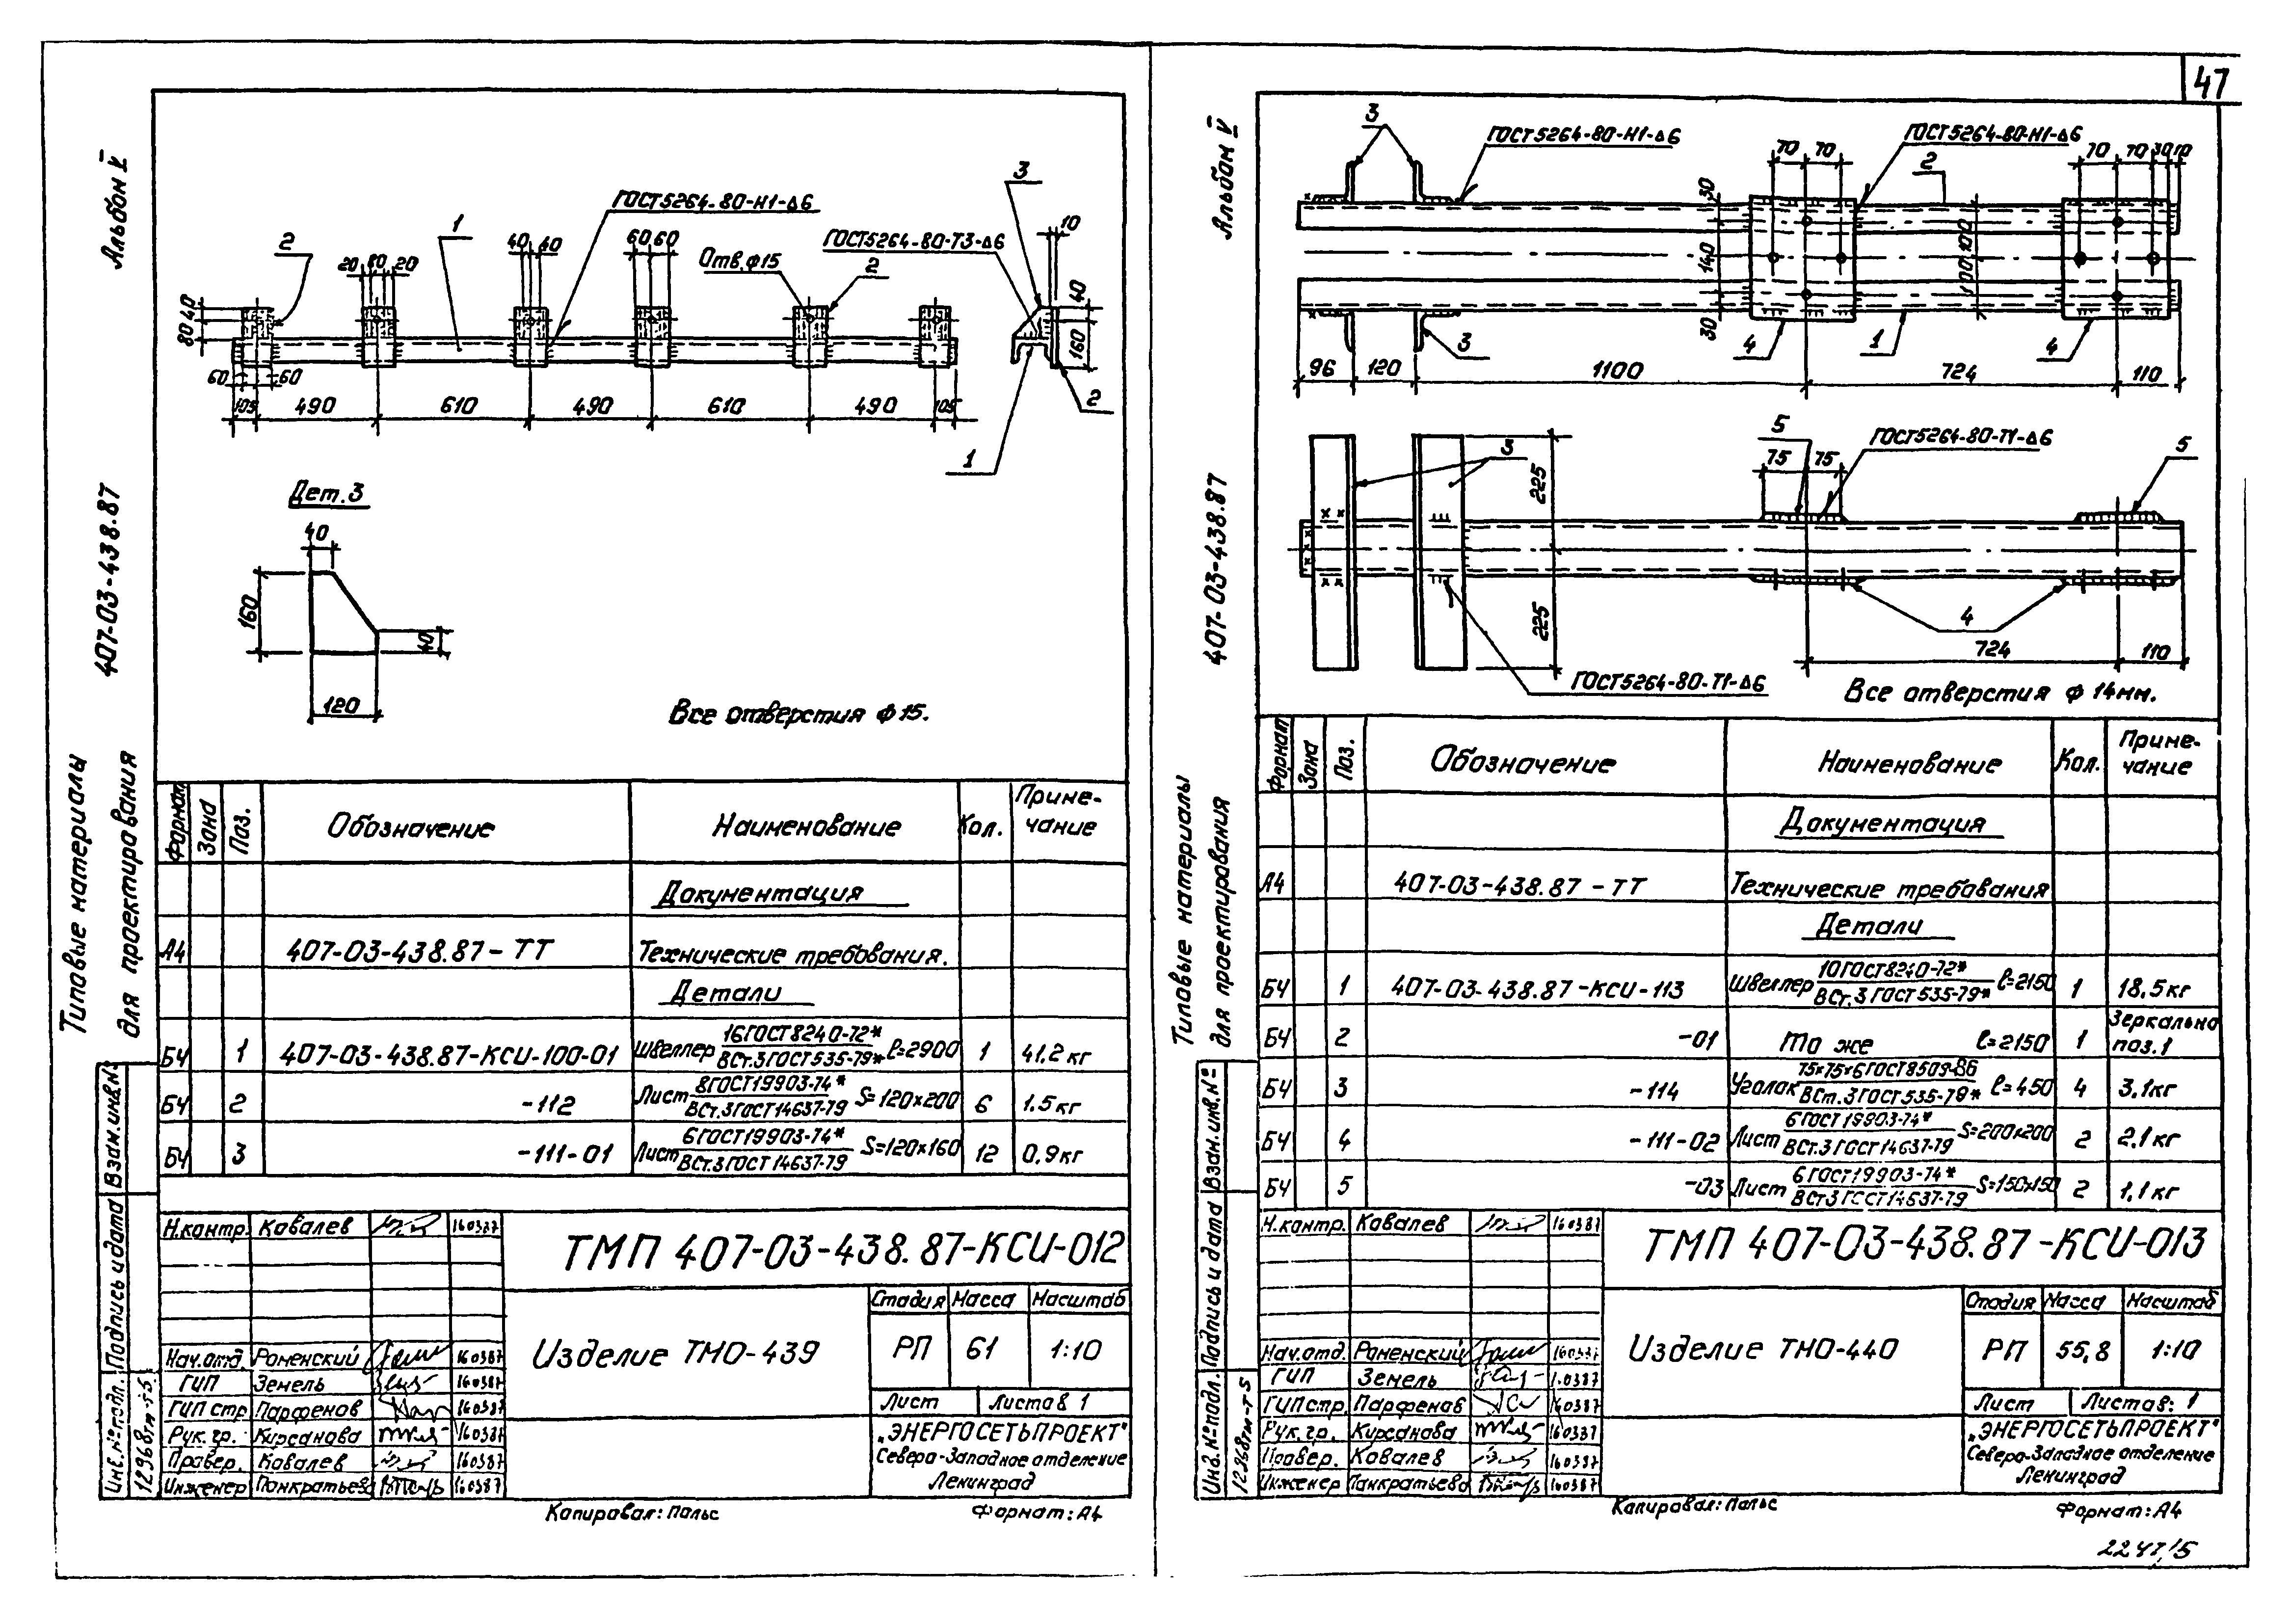 47
Альбом V
407-03-438.87
Типовые материалы
для проектирования
2
1
ГОСТ 5264-80-Н1-Δ6
ГОСТ 5264-80-Т3-Δ6
Отв. ф15
2
3
10
20 80 20
40 40
60 60
40
80
60 60
105 490 610 490 610 490 105
40
160
2
1
Дет. 3
40
160
40
120
Все отверстия ф 15.
Формат Зона Поз. Обозначение Наименование Кол. Приме-
чание
Документация
А4 407-03-438.87-ТТ Технические требования.
Детали
БЧ 1 407-03-438.87-КСИ-100-01 Швеллер 16 ГОСТ 8240-72* / ВСт.3 ГОСТ 535-79* ℓ=2900 1 41,2 кг
БЧ 2 -112 Лист 8 ГОСТ 19903-74* / ВСт.3 ГОСТ 14637-79 S=120×200 6 1,5 кг
БЧ 3 -111-01 Лист 6 ГОСТ 19903-74* / ВСт.3 ГОСТ 14637-79 S=120×160 12 0,9 кг
Взам. инв.№
Подпись и дата
Инв.№ подл.
12968тм-т-5
Н.контр. Ковалев 160387
Нач.отд. Роменский 160387
ГИП Земель 160387
ГИП стр. Парфенов 160387
Рук. гр. Кирсанова 160387
Провер. Ковалев 160387
Инженер Панкратьева 160387
ТМП 407-03-438.87-КСИ-012
Изделие ТМО-439
Стадия Масса Масштаб
РП 61 1:10
Лист Листов 1
„ЭНЕРГОСЕТЬПРОЕКТ"
Северо-Западное отделение
Ленинград
Копировал: Пальс
Формат: А4
Альбом V
407-03-438.87
Типовые материалы
для проектирования
3
ГОСТ 5264-80-Н1-Δ6
ГОСТ 5264-80-Н1-Δ6
70 70
2
70 70 30 10
30
140
30
100 100
3
4
1
4
96 120 1100 724 110
3
225
225
5
ГОСТ 5264-80-Т1-Δ6
75 75
5
4
724 110
ГОСТ 5264-80-Т1-Δ6
Все отверстия ф 14мм.
Формат Зона Поз. Обозначение Наименование Кол. Приме-
чание
Документация
А4 407-03-438.87-ТТ Технические требования
Детали
БЧ 1 407-03-438.87-КСИ-113 Швеллер 10 ГОСТ 8240-72* / ВСт.3 ГОСТ 535-79* ℓ=2150 1 18,5 кг
БЧ 2 -01 То же ℓ=2150 1 Зеркально поз.1
БЧ 3 -114 Уголок 75×75×6 ГОСТ 8509-86 / ВСт.3 ГОСТ 535-79* ℓ=450 4 3,1 кг
БЧ 4 -111-02 Лист 6 ГОСТ 19903-74* / ВСт.3 ГОСТ 14637-79 S=200×200 2 2,1 кг
БЧ 5 -03 Лист 6 ГОСТ 19903-74* / ВСт3 ГОСТ 14637-79 S=150×150 2 1,1 кг
Взам. инв.№
Подпись и дата
Инв.№ подл.
12968тм-т-5
Н.контр. Ковалев 160387
Нач.отд. Роменский 160387
ГИП Земель 160387
ГИП стр. Парфенов 160387
Рук. гр. Кирсанова 160387
Провер. Ковалев 160387
Инженер Панкратьева 160387
ТМП 407-03-438.87-КСИ-013
Изделие ТМО-440
Стадия Масса Масштаб
РП 55,8 1:10
Лист Листов: 1
„ЭНЕРГОСЕТЬПРОЕКТ"
Северо-Западное отделение
Ленинград
Копировал: Пальс
Формат: А4